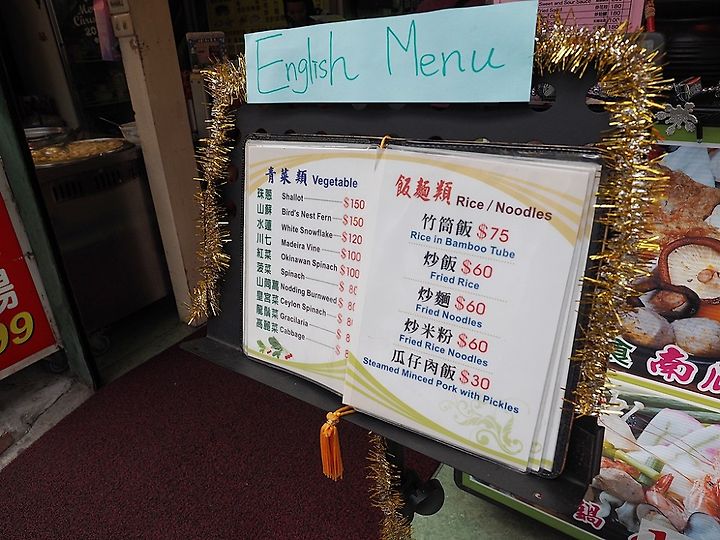 English Menu
Sweet and Sour Sauce
青菜類 Vegetable
珠蔥 Shallot $150
山蘇 Bird's Nest Fern $150
水蓮 White Snowflake $120
川七 Madeira Vine $100
紅菜 Okinawan Spinach $100
菠菜 Spinach $
山茼蒿 Nodding Burnweed $
皇宮菜 Ceylon Spinach $
龍鬚菜 Gracilaria $
高麗菜 Cabbage $
飯麵類 Rice / Noodles
竹筒飯 $75
Rice in Bamboo Tube
炒飯 $60
Fried Rice
炒麵 $60
Fried Noodles
炒米粉 $60
Fried Rice Noodles
瓜仔肉飯 $30
Steamed Minced Pork with Pickles
湯
99
南瓜
鍋